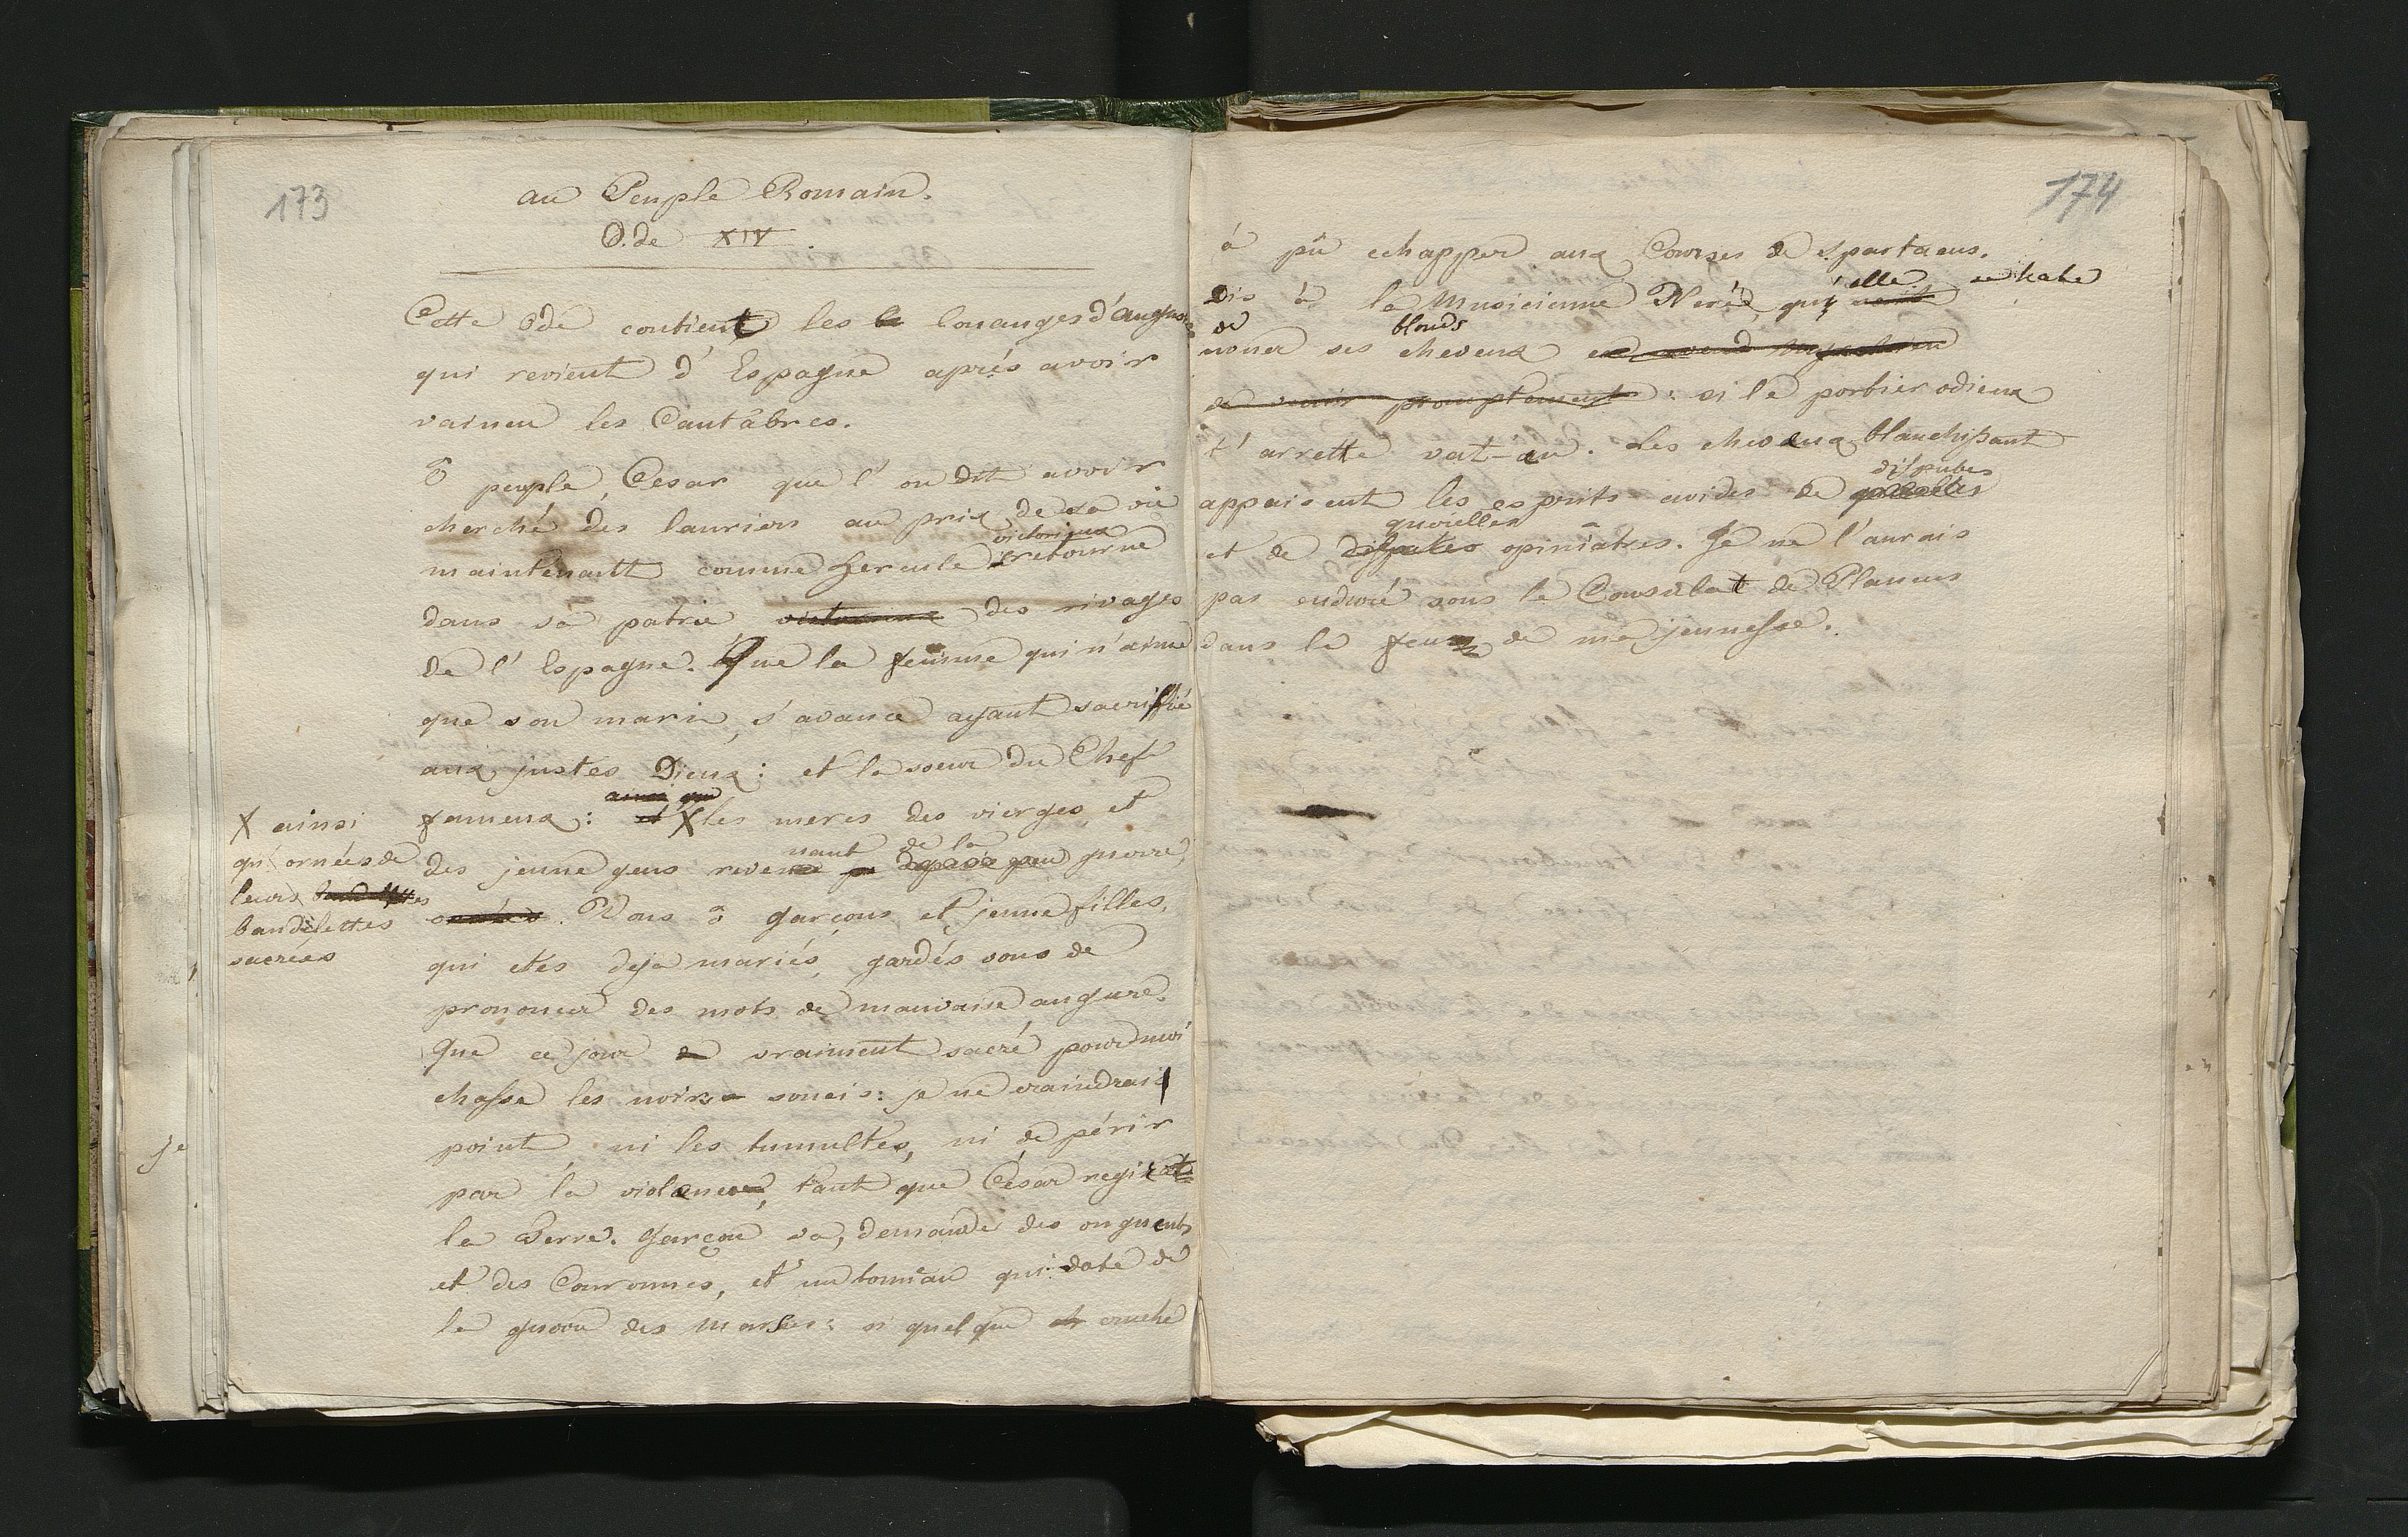 173
au Peuple Romain.
O.de XIV.
Cette Ode contient les louanges d'august
qui revient d'Espagne aprés avoir
vaincu les Cantâbres.
ô peuple, Cesar que l'on dit avoir
cherché des lauriers au prix de sa vie
victorieux
maintenantt comme hercule retourne
dans sa patrie victorieux des rivages
de l'Espagne. Que la femme qui n'aime
que son mari, s'avance ayant sacrifié
aux justes Dieux: et la soeur du Chef
ainsi que
fameux: et X les meres des vierges et
X ainsi
qu'ornées de
leurs bandelettes
bandelettes
sacrées
nant de la
des jeune gens reve guerre,
ornées. Vous ô garçons et jeune filles,
qui etes deja mariés, gardés vous de
prononcer des mots de mauvaise augure.
Que ce jour vraiment sacré pour moi
chasse les noirs soucis: je ne craindrai
point ni les tumultes, ni de périr
par la violence, tant que César regira
la Terre. Garçon va, demande des onguents
et des Couronnes, et un tonneau qui date de
la guerre des Marses: si quelque cruche
je
174
à pû echapper aux Courses de Spartacus.
elle se hate
Dis à la Musicienne Neréé, qu'
de blonds
nouer ses cheveux
de venir promptement: si le portier odieux
t'arrette vat-en. Les cheveux blanchissant
disputes
appaisent les esprits avides de
querelles
et de disputes opiniâtres. Je ne l'aurais
pas enduré sous le Consulat de Plancus
dans le feu de ma jeunesse.